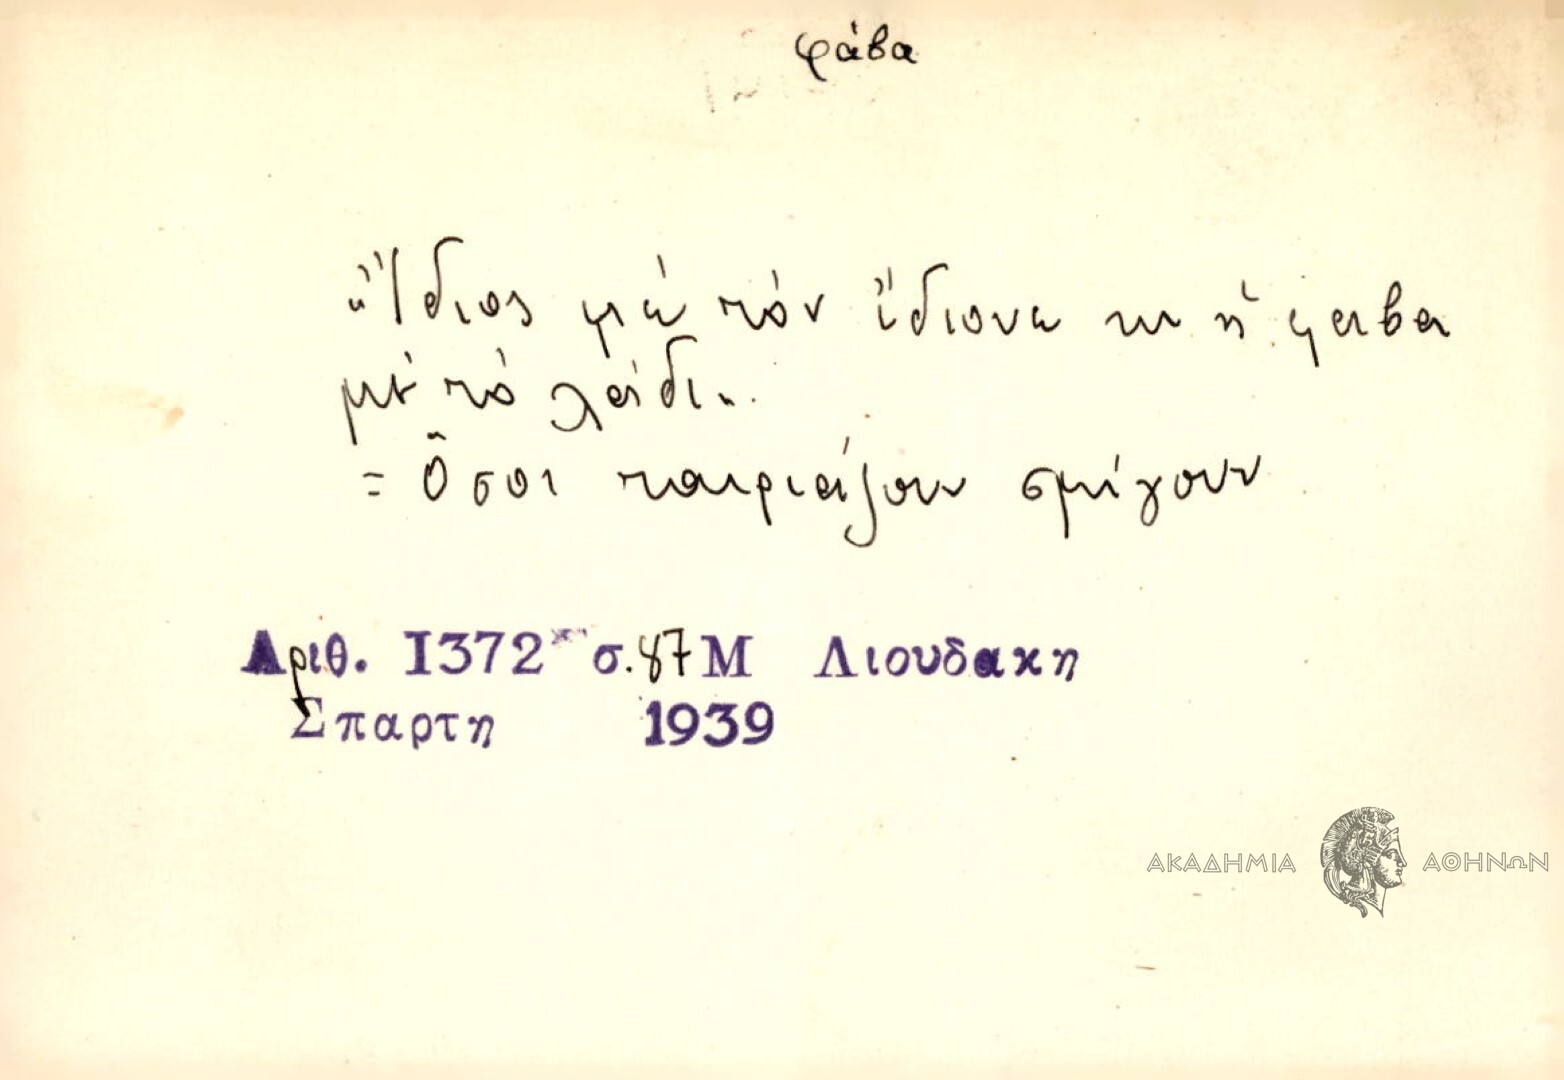 φάβα
"Ἴδιος μὲ τὸν ἴδιονε κι ἡ φαβα
μὲ τὸ λάδι".
= Ὅσοι ταιριάζουν σμίγουν
Αριθ. 1372 σ. 87 Μ Λιουδακη
Σπαρτη 1939
ΑΚΑΔΗΜΙΑ ΑΘΗΝΩΝ